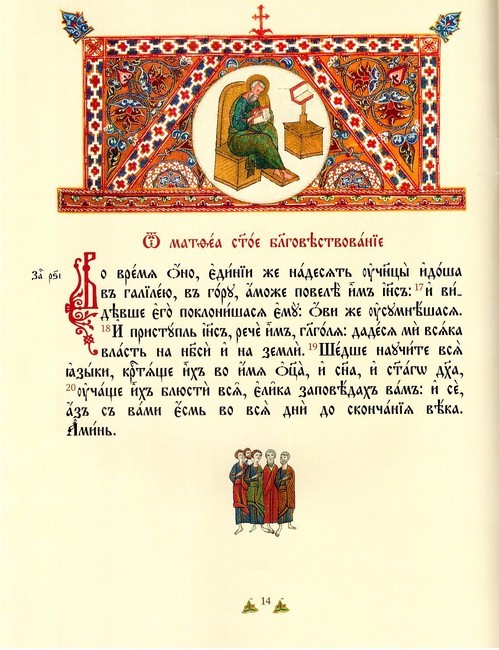 Ѿ матѳеа ст҃ое бл҃говѣствованїе
За҃ рѕ҃і
Во время ѻ҆но, є҆динїи же на́десять ᲂу҆чн҃цы и҆до́ша
въ галїле́ю, въ го́рꙋ, а҆́може повелѣ̀ и҆̀мъ і҆и҃съ: 17 и҆ ви́-
дѣвше є҆го̀ поклони́шасѧ є҆мꙋ̀: ѻ҆́ви же ᲂу҆сꙋмнѣ́шасѧ.
18 И҆ пристꙋ́пль і҆и҃съ, речѐ и҆̀мъ, гл҃го́лѧ: даде́сѧ мѝ всѧ́ка
вла́сть на нб҃сѝ и҆ на землѝ. 19 Ше́дше наꙋчи́те всѧ̑
ꙗ҆зы́ки, крⷭ҇тѧ́ще и҆̀хъ во и҆́мѧ ѻ҆ц҃а̀, и҆ сн҃а, и҆ ст҃а́гѡ дх҃а,
20 ᲂу҆ча́ще и҆̀хъ блюстѝ всѧ̑, є҆ли̑ка заповѣ́дахъ ва́мъ: и҆ сѐ,
а҆́зъ съ ва́ми є҆́смь во всѧ̑ дни̑ до сконча́нїѧ вѣ́ка.
А҆ми́нь.
14